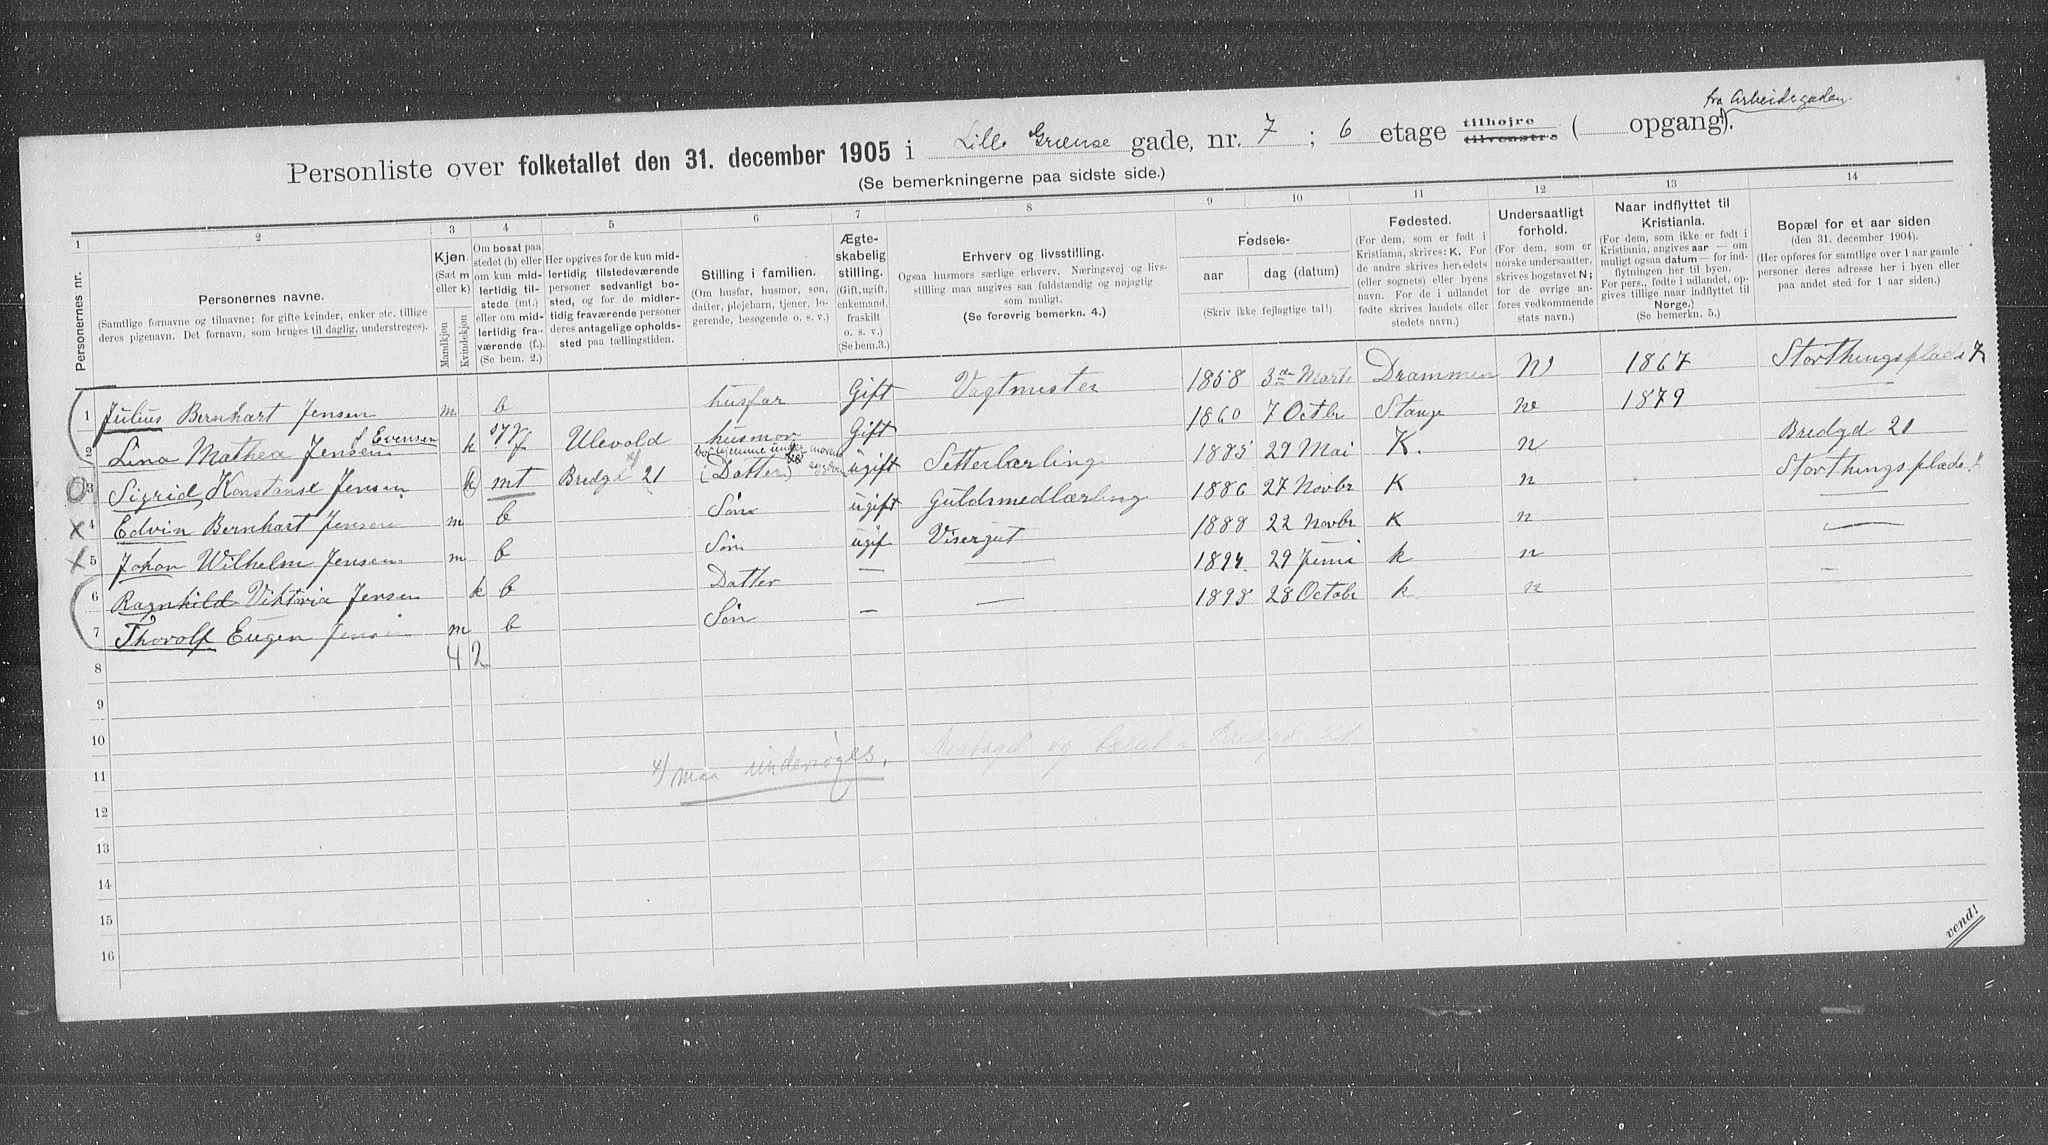 fra Arbeidergaden
Personliste over folketallet den 31. december 1905 i Lille Grænse gade, nr. 7 ; 6 etage tilhøjre tilvenstre ( opgang).
(Se bemerkningerne paa sidste side.)
1 2 3 4 5 6 7 8 9 10 11 12 13 14
Personernes nr.
Personernes navne.
(Samtlige fornavne og tilnavne; for gifte kvinder, enker etc. tillige
deres pigenavn. Det fornavn, som bruges til daglig, understreges).
Kjøn.
(Sæt m
eller k)
Mandkjøn
Kvindekjøn
Om bosat paa
stedet (b) eller
om kun mid-
lertidig tilstede (mt.)
eller om mid-
lertidig fra-
værende (f.)
(Se bem. 2.)
Her opgives for de kun mid-
lertidig tilstedeværende
personer sedvanlig bo-
sted, og for de midler-
tidig fraværende personer
deres antagelige opholds-
sted paa tællingstiden.
Stilling i familien.
(Om husfar, husmor, søn,
datter, plejebarn, tjener, lo-
gerende, besøgende o. s. v.)
Ægte-
skabelig
stilling.
(Gift, ugift,
enkemand,
fraskilt
o. s. v.)
(Se bem.3.)
Erhverv og livsstilling.
Ogsaa husmors særlige erhverv. Næringsvej og livs-
stilling maa angives saa fuldstændig og nøjagtig
som muligt.
(Se forøvrig bemerkn. 4.)
Fødsels-
aar dag (datum)
(Skriv ikke fejlagtige tal!)
Fødested.
(For dem, som er født i
Kristiania, skrives: K. For
de andre skrives herredets
(eller sognets) eller byens
navn. For de i udlandet
fødte skrives landets eller
stedets navn.)
Undersaatligt
forhold.
(For dem, som er
norske undersaatter,
skrives bogstavet N;
for de øvrige an-
føres vedkommende
stats navn.)
Naar indflyttet til
Kristiania.
(For dem, som ikke er født i
Kristiania, angives aar — om
muligt ogsaa datum — for ind-
flytningen her til byen.
For pers., fødte i udlandet, op-
gives tillige naar indflyttet til
Norge.)
(Se bemerkn. 5.)
Bopæl for et aar siden
(den 31. december 1904).
(Her opføres for samtlige over 1 aar gamle
personer deres adresse her i byen eller
paa andet sted for 1 aar siden.)
1 Julius Bernhart Jensen m b husfar Gift Vagtmester 1858 3de Marts Drammen N 1867 Storthingsplads 7
2 Lina Mathea Jensen f. Evensen k f Ulevold husmor Gift 1860 7 Octbr Stange n 1879 —
3 Sigrid Konstanse Jensen k mt Bredgd 21 (Datter) ugift Setterlærling 1885 29 Mai K. n Bredgd 21
x 4 Edvin Bernhart Jensen m b Søn ugift Guldsmedlærling 1886 27 Novbr K n Storthingsplads 7
x 5 Johan Wilhelm Jensen m b Søn ugif Visergut 1888 22 Novbr K n —
6 Ragnhild Viktoria Jensen k b Datter — — 1894. 29 Juni k n —
7 Thorolf Eugen Jensen m b Søn — — 1898 28 Octobr k n —
8 4 2
9
10
x) maa undersøges. Medtaget og talt i Bredgd. 21
11
12
13
14
15
16
vend!